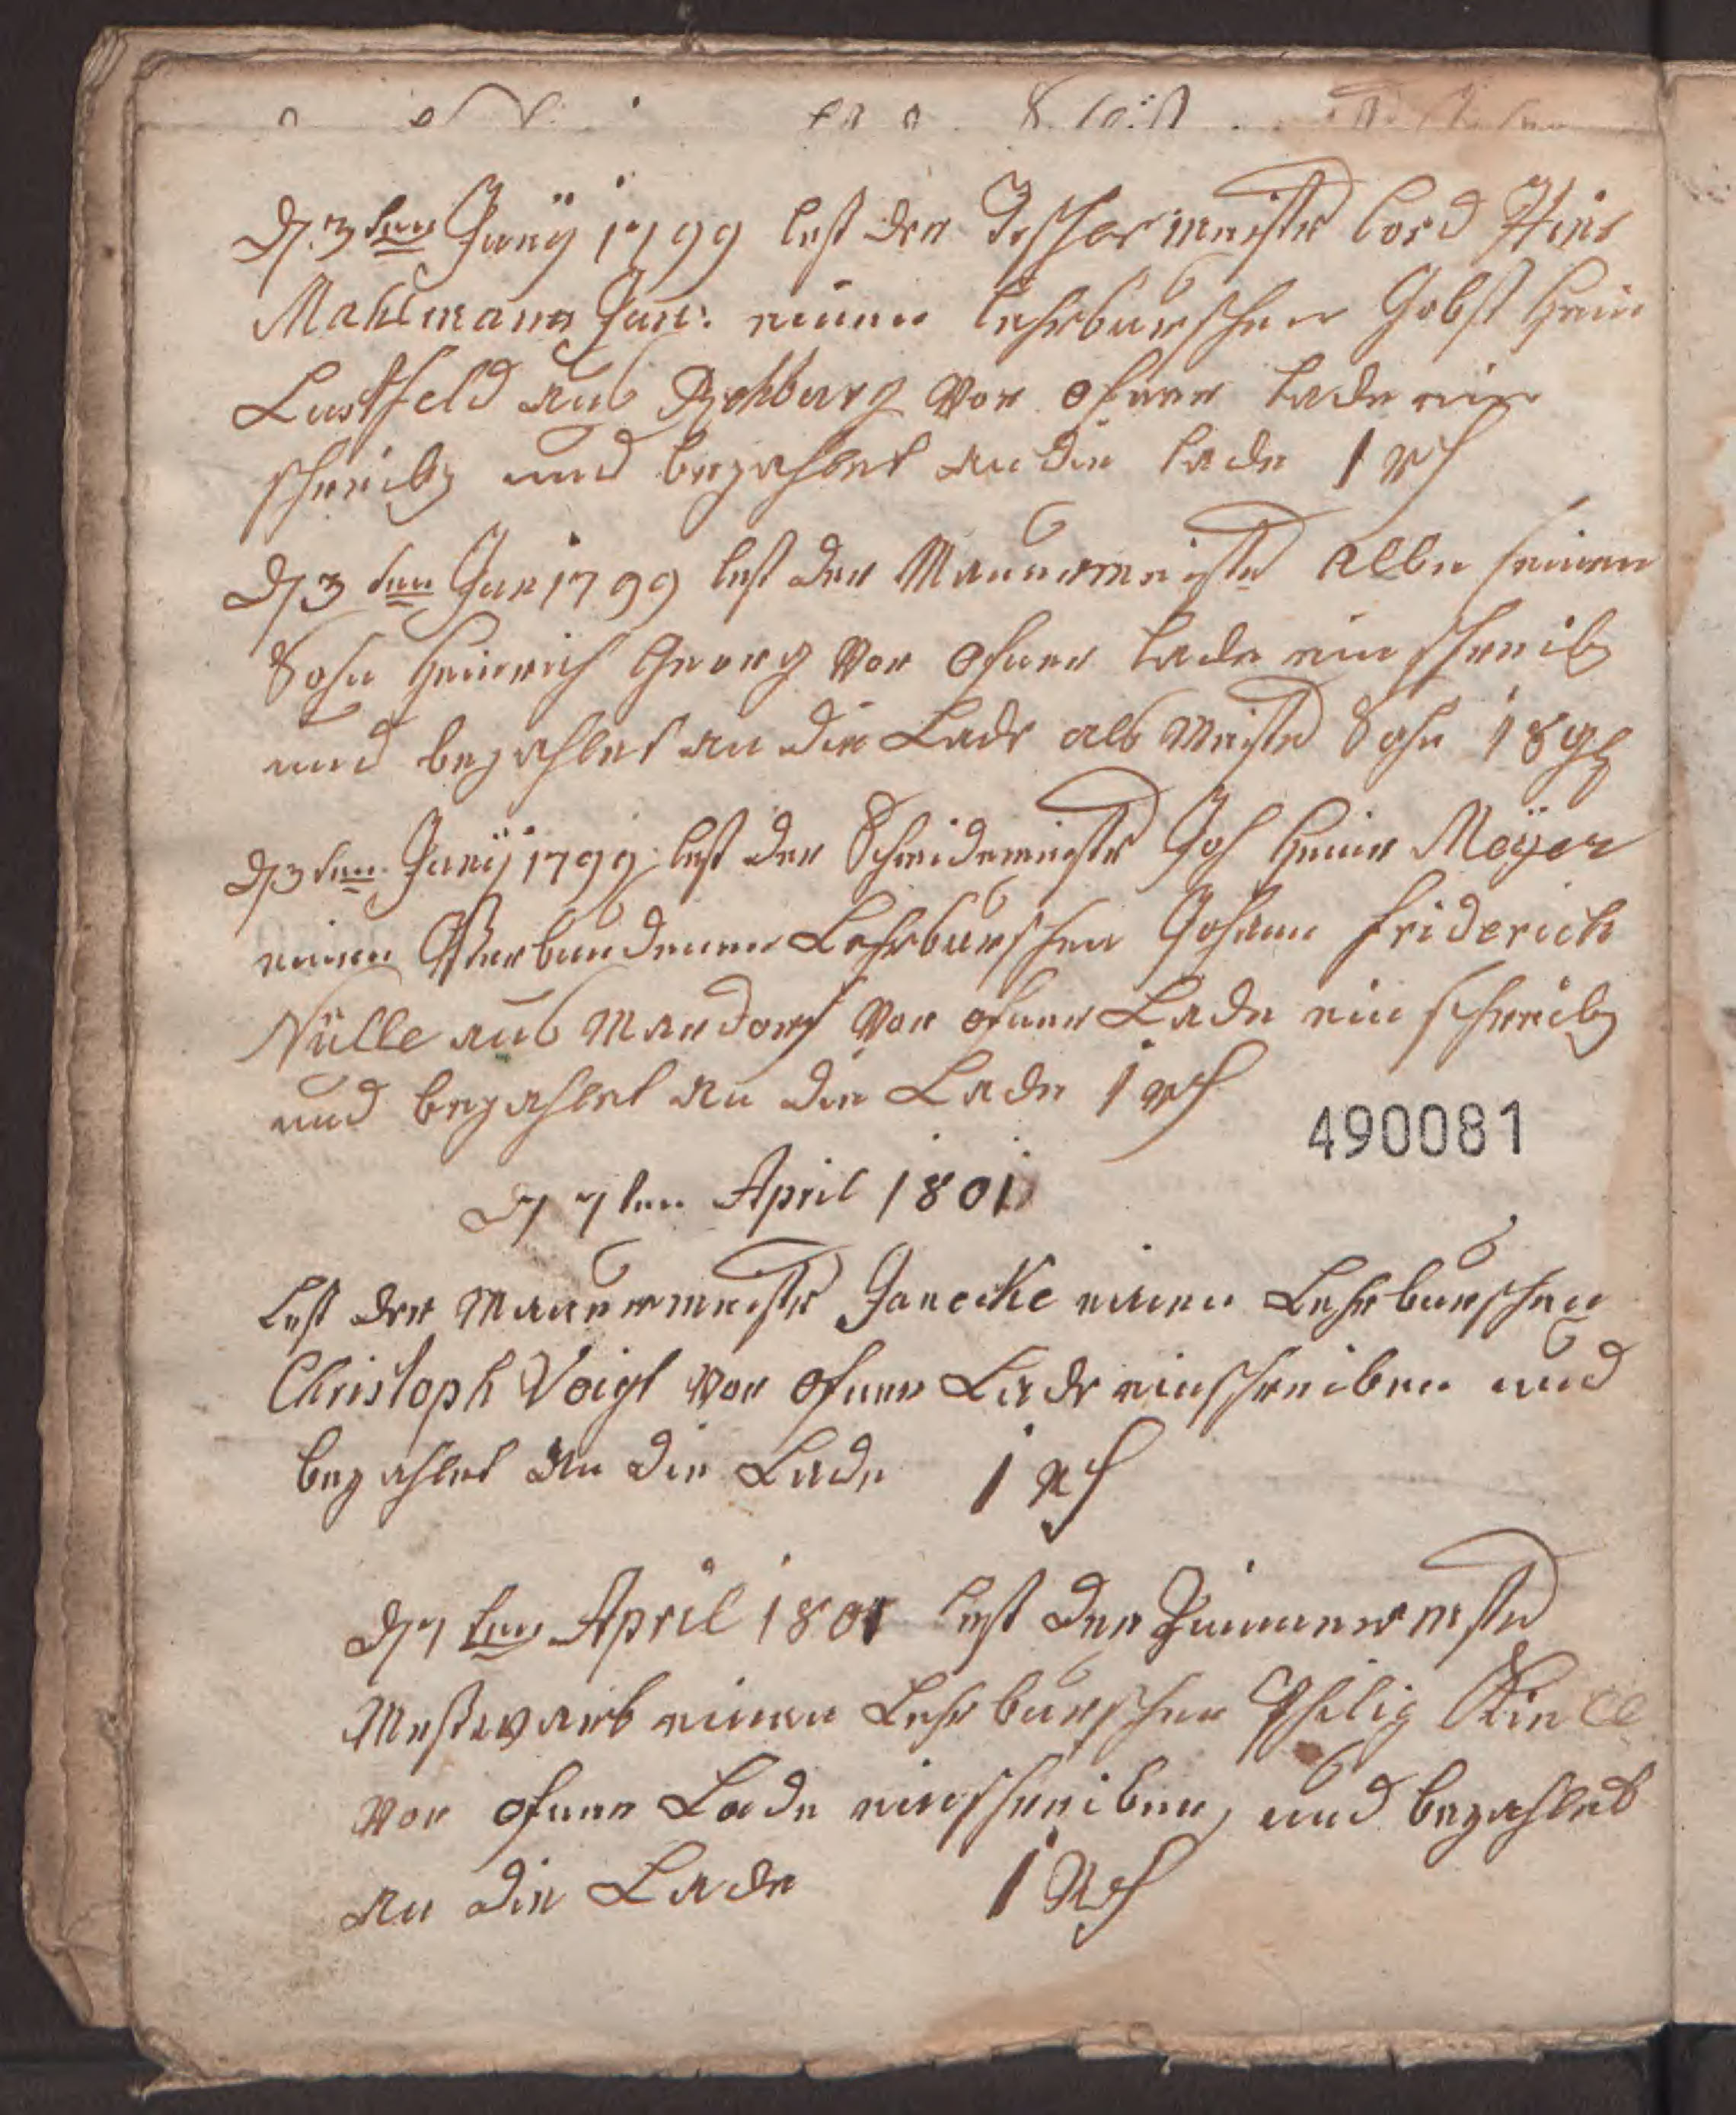 D 3ten Juny 1799 lest der Tischermeister Cord Hinr
Mahlmann Jun: einen Lehrburschen Jobst Hein
Lustfeld aus Rehburg vor ofner lade ein
schreibg und bezahlet an die lade 1 rh
D 3ten Jun 1799 lest der Mauermeister Albe seinen
Sohn Heinrich Georg vor ofner lade ein schreibg
und bezahlet an die Lade als Meister Sohn 18 gg
D 3ten Juny 1799 lest der Schneidemeister Joh Heinr Meÿer
einen Verbundenen Lehrburschen Johann Friderich
Nülle aus Mardorf vor ofner Lade ein schreibg
und bezahlet an die Lade 1 rh
490081
D 7ten April 1801
Lest der Mauermeister Janecke einen Lehrburschen
Christoph Voigt vor ofner Lade einschreiben und
bezahlet an die Lade 1 rh
D 7ten April 1801 lest der Zimmermster
Meßwarb einen Lehrburschen Philig
vor ofner Lade einschreiben, und bezahlet
an die Lade 1 Rh